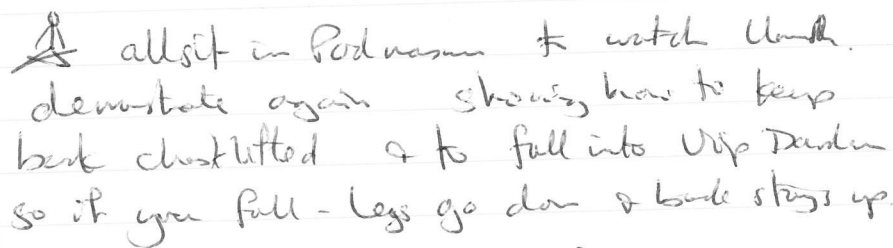 all sit in Padmasana & watch
demonstrate again showing how to keep
back chest lifted & to fall into Urdp Dandas
so if you fall - legs go down & back stays up.